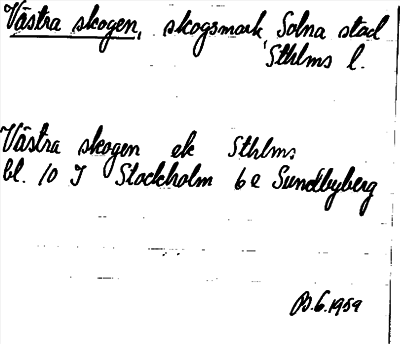 Västra skogen, skogsmark, Solna stad
Sthlms l.
Västra skogen ek Sthlms
bl. 10 I Stockholm 6 e Sundbyberg
B.G. 1959